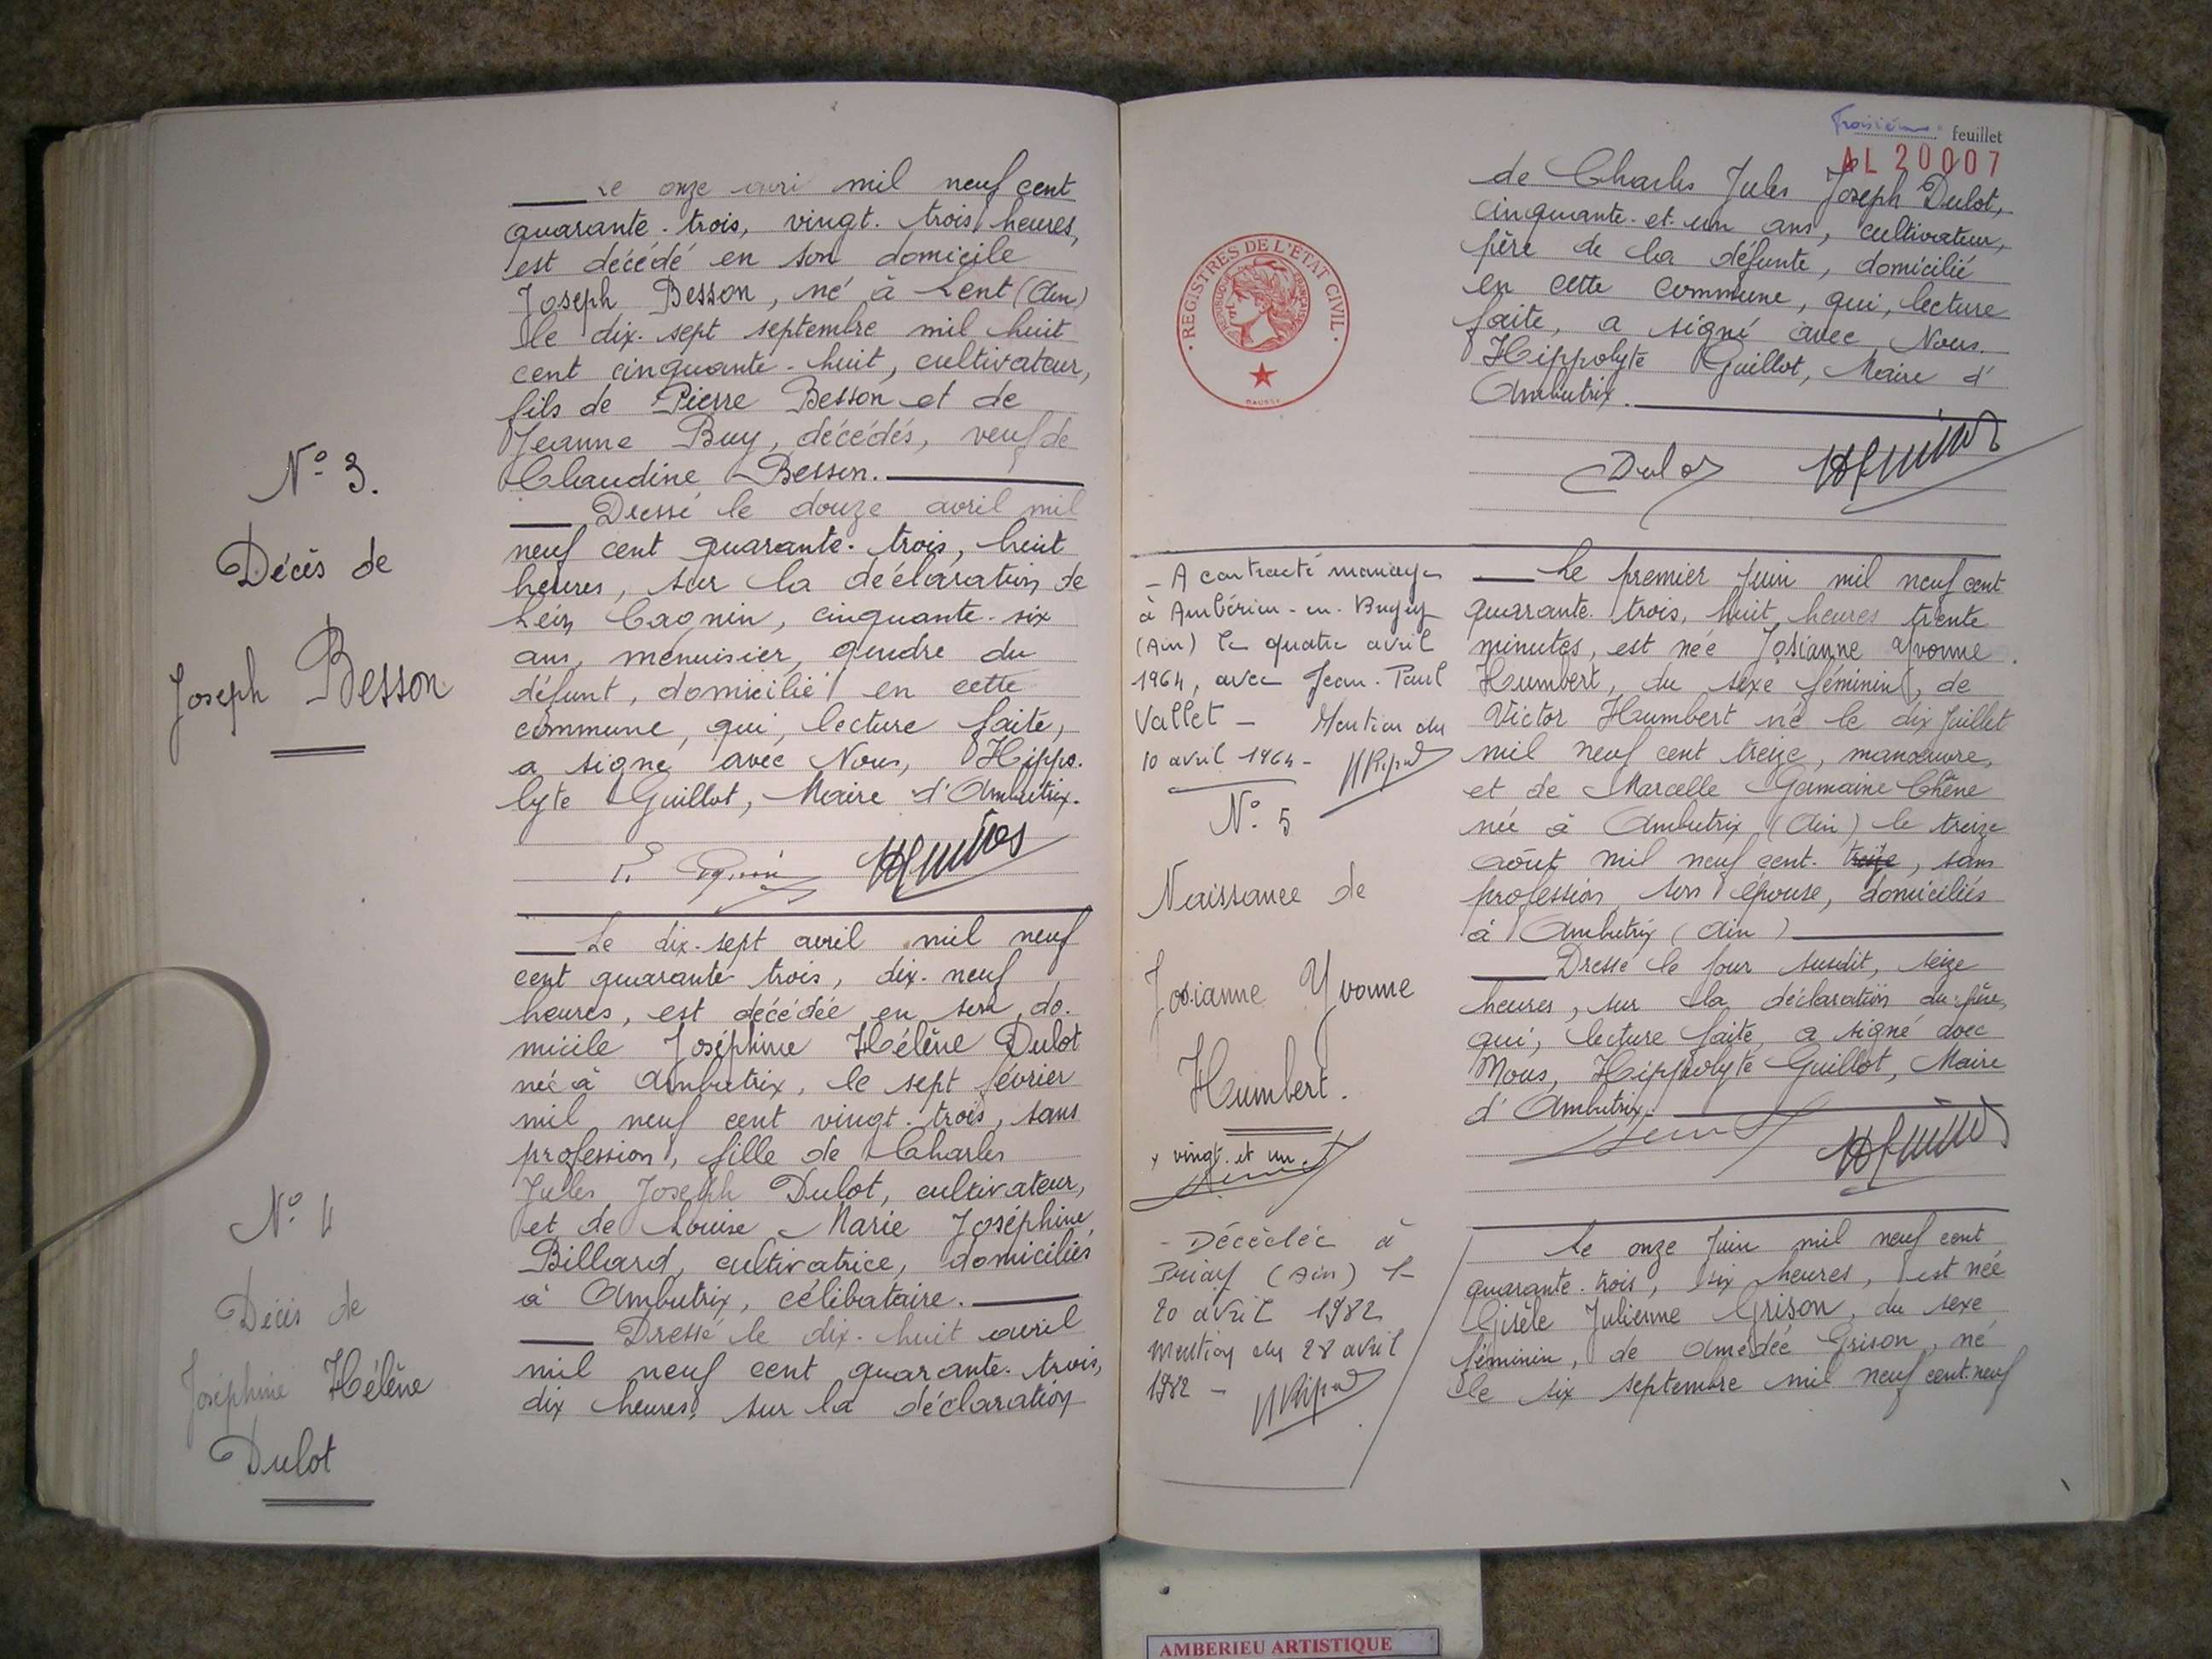 Le onze avri mil neuf cent
quarante-trois, vingt-trois heures,
est décédé en son domicile
Joseph Besson, né à Lent (Ain)
le dix-sept septembre mil huit
cent cinquante-huit, cultivateur,
fils de Pierre Besson et de
Jeanne Buy, décédés, veuf de
Claudine Besson.
N° 3.
Décès de
Joseph Besson
Dressé le douze avril mil
neuf cent quarante-trois, huit
heures, sur la déclaration de
Léon Cagnin, cinquante-six
ans, menuisier, gendre du
défunt, domicilié en cette
commune, qui, lecture faite,
a signé avec Nous, Hippo-
lyte Guillot, Maire d'Ambutrix.
Le dix-sept avril mil neuf
cent quarante trois, dix-neuf
heures, est décédée en son do-
micile Joséphine Hélène Dulot
née à Ambutrix, le sept février
mil neuf cent vingt-trois, sans
profession, fille de Charles
Jules Joseph Dulot, cultivateur,
et de Louise Marie Joséphine
Billard, cultivatrice, domiciliés
à Ambutrix, célibataire.
N° 4
Décès de
Joséphine Hélène
Dulot
Dressé le dix-huit avril
mil neuf cent quarante-trois,
dix heures, sur la déclaration
Troisième feuillet
AL 20007
de Charles Jules Joseph Dulot,
cinquante-et-un ans, cultivateur,
père de la défunte, domicilié
en cette commune, qui, lecture
faite, a signé avec Nous.
Hippolyte Guillot, Maire d'
Ambutrix.
REGISTRES DE L'ÉTAT CIVIL
RÉPUBLIQUE FRANÇAISE
Dulot
- A contracté mariage
à Ambérieu-en-Bugey
(Ain) le quatre avril
1964, avec Jean-Paul
Vallet - Mention du
10 avril 1964 -
N° 5
Naissance de
Josianne Yvonne
Humbert.
x vingt-et un
Le premier Juin mil neuf cent
quarante-trois, huit heures trente
minutes, est née Josianne Yvonne
Humbert, du sexe féminin, de
Victor Humbert né le dix Juillet
mil neuf cent treize, manœuvre,
et de Marcelle Germaine Chêne
née à Ambutrix (Ain) le treize
août mil neuf cent-treize, sans
profession, son épouse, domiciliés
à Ambutrix (Ain)
Dressé le jour susdit, seize
heures, sur la déclaration du père,
qui, lecture faite, a signé avec
Nous, Hippolyte Guillot, Maire
d'Ambutrix.
- Décédée à
Priay (Ain) le
20 avril 1982
Mention du 28 avril
1982 -
Le onze Juin mil neuf cent
quarante-trois, six heures, est née
Gisèle Julienne Grison, du sexe
féminin, de Amédée Grison, né
le six septembre mil neuf cent-neuf
AMBERIEU ARTISTIQUE